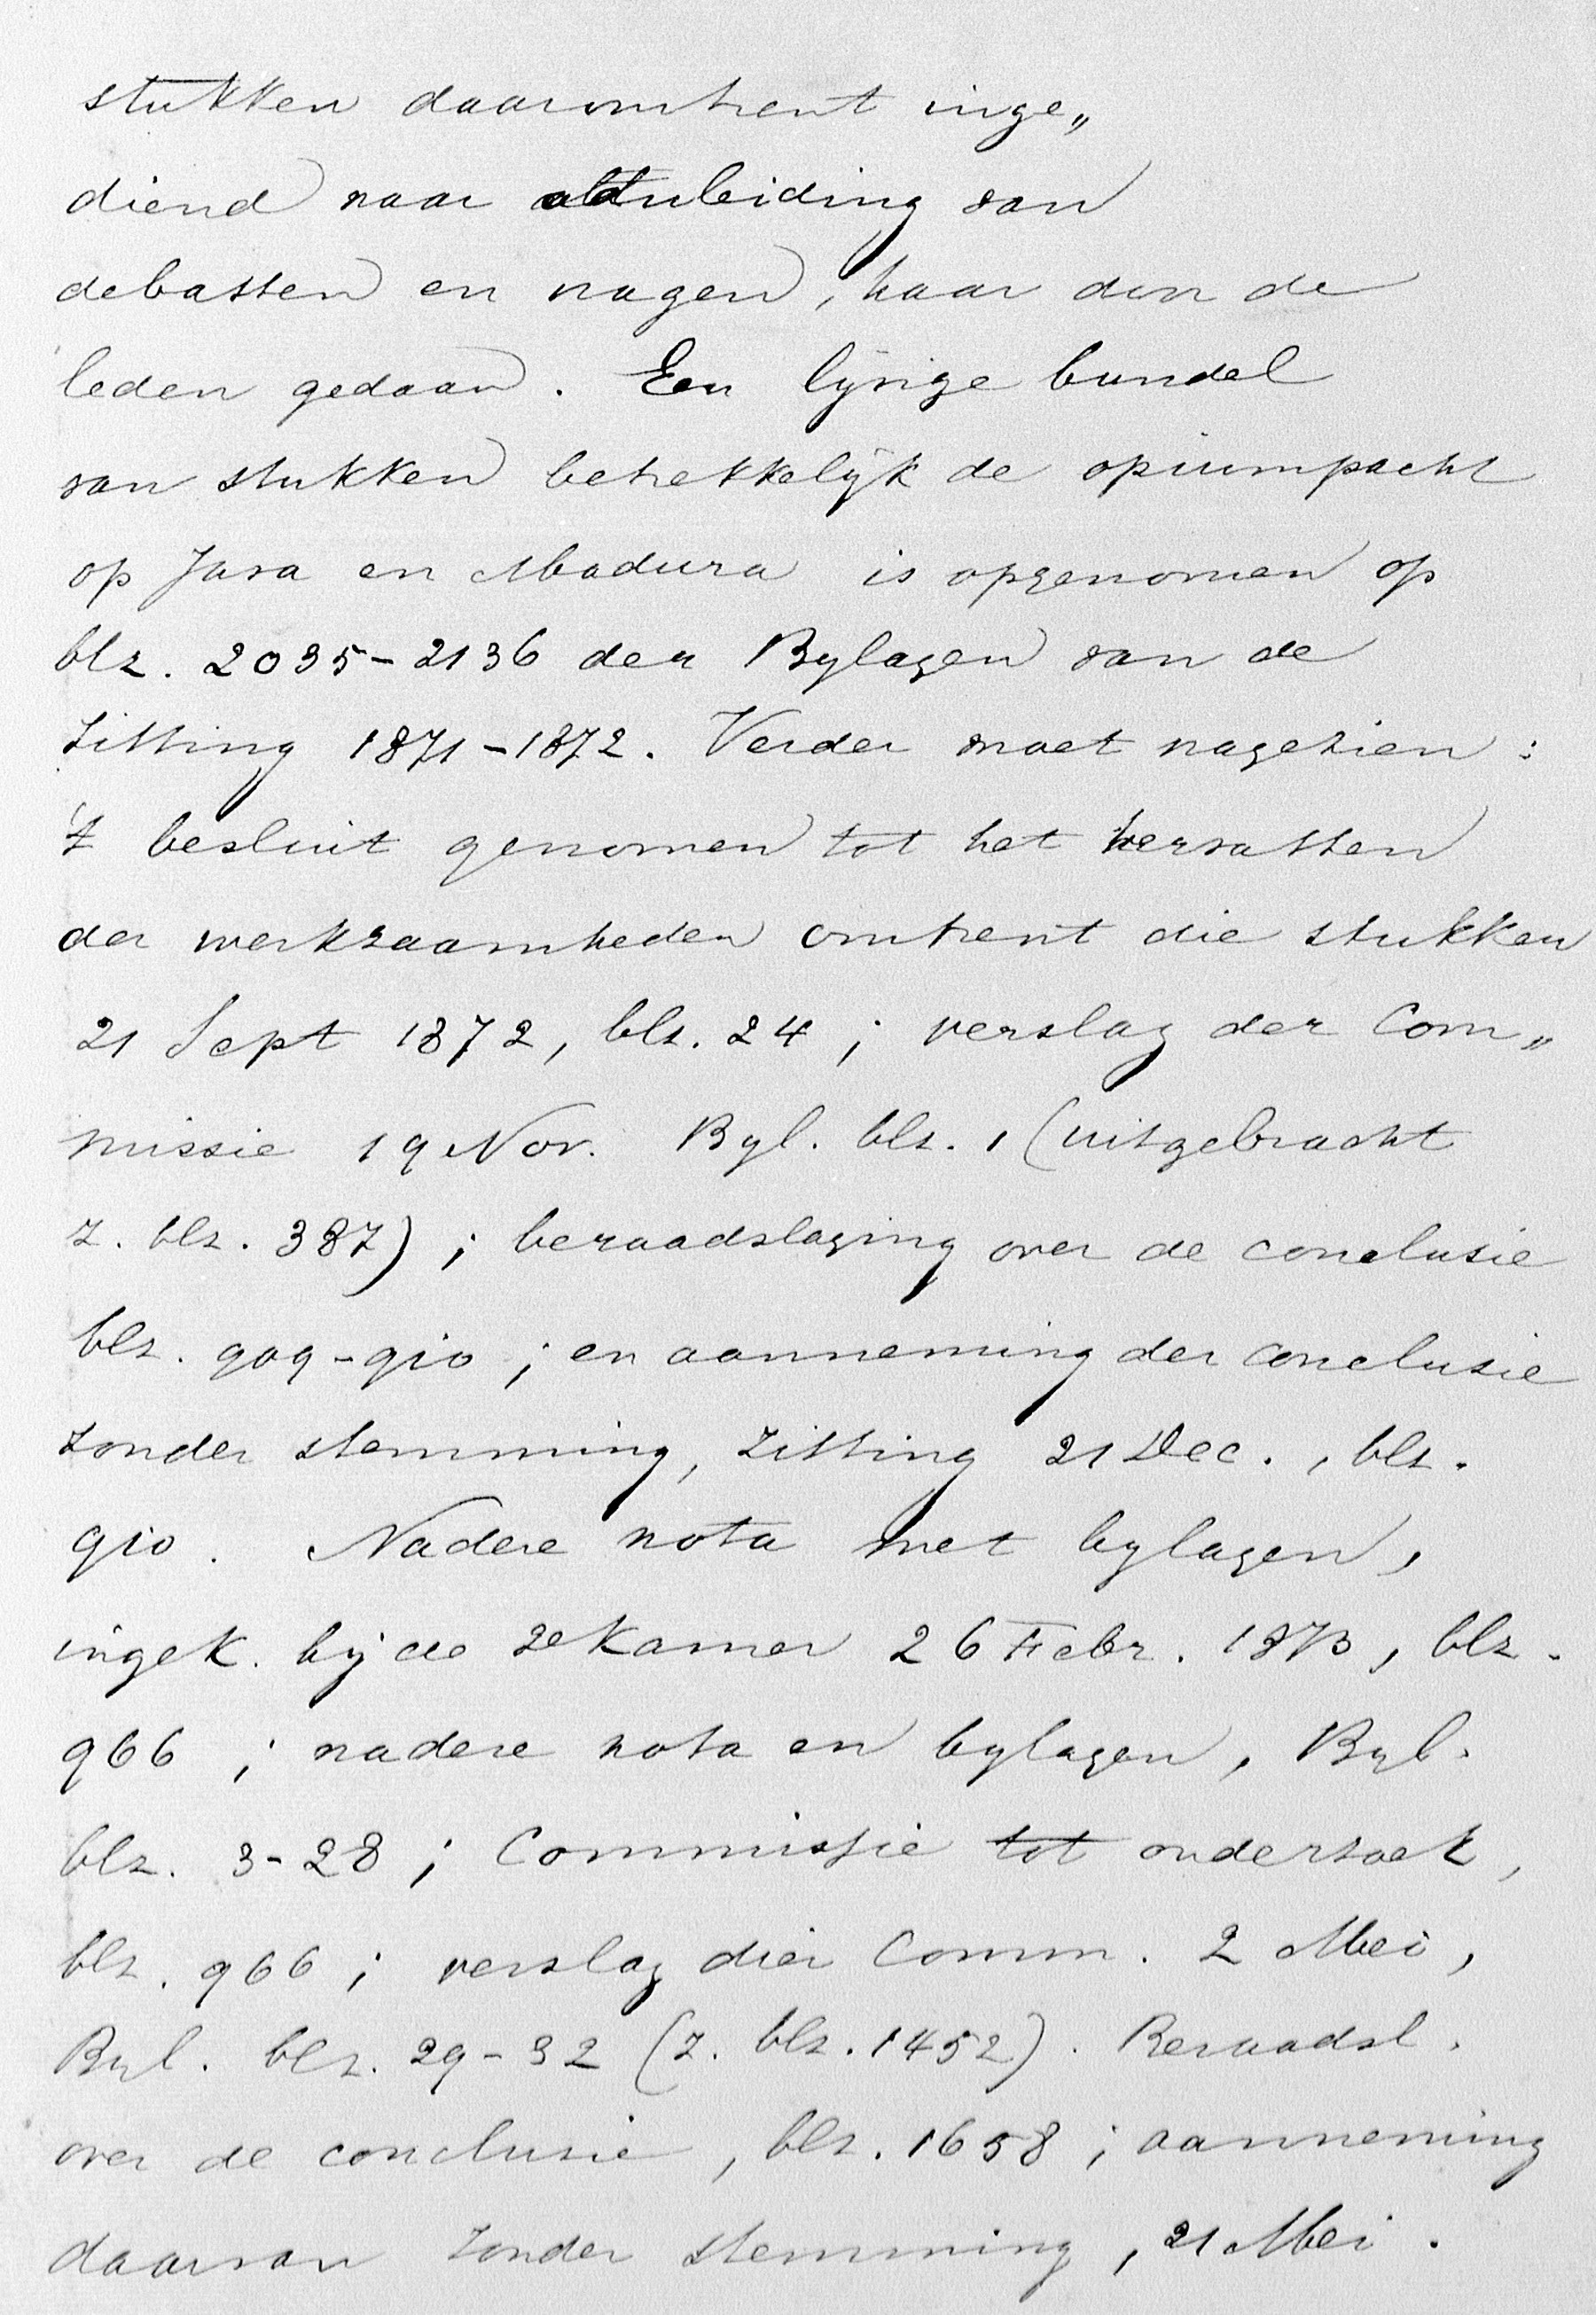 stukken daaromtrent inge„
diend naar aanleiding van
debatten en vragen, haar door de
leden gedaan. Een lijvige bundel
van stukken betrekkelijk de opiumpacht
op Java en Madura is opgenomen op
blz. 2035-2136 der Bylagen van de
Zitting 1871-1872. Verder moet nagezien:
't besluit genomen tot het hervatten
der werkzaamheden omtrent die stukken
21 Sept 1872, blz. 24; verslag der Com„
missie 19 Nov. Byl. blz. 1 (uitgebracht
z. blz. 387); beraadslaging over de conclusie
blz. 909-910; en aanneming der conclusie
zonder stemming, zitting 21 Dec., blz.
910. Nadere nota met bylagen,
ingek. bij de 2e Kamer 26 Febr. 1873, blz.
966; nadere nota en bylagen, Byl.
blz. 3-28; Commissie tot onderzoek,
blz. 966; verslag dier Comm. 2 Mei,
Byl. blz. 29-32 (z. blz. 1452). Beraadsl.
over de conclusie, blz. 1658; aanneming
daarvan zonder stemming, 21 Mei.